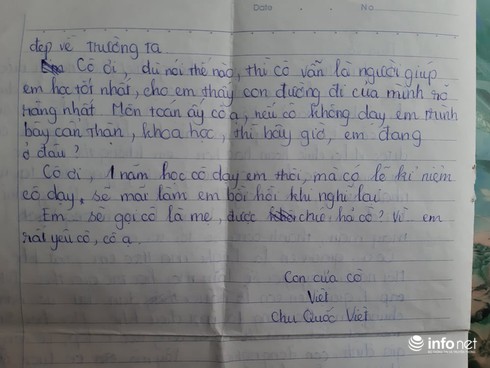 Date No
đẹp về trường ta
Cô ơi, dù nói thế nào, thì cô vẫn là người giúp
em học tốt nhất, cho em thấy con đường đi của mình rõ
ràng nhất Môn toán ấy cô ạ, nếu cô không dạy em trình
bày cẩn thận, khoa học, thì bây giờ, em đang
ở đâu?
Cô ơi, 1 năm học cô dạy em thôi, mà có lẽ kỉ niệm
cô dạy, sẽ mãi làm em bồi hồi khi nghĩ lại
Em sẽ gọi cô là mẹ, được chứ hả cô? Vì em
rất yêu cô, cô ạ.
Con của cô
Việt
Chu Quốc Việt
infonet